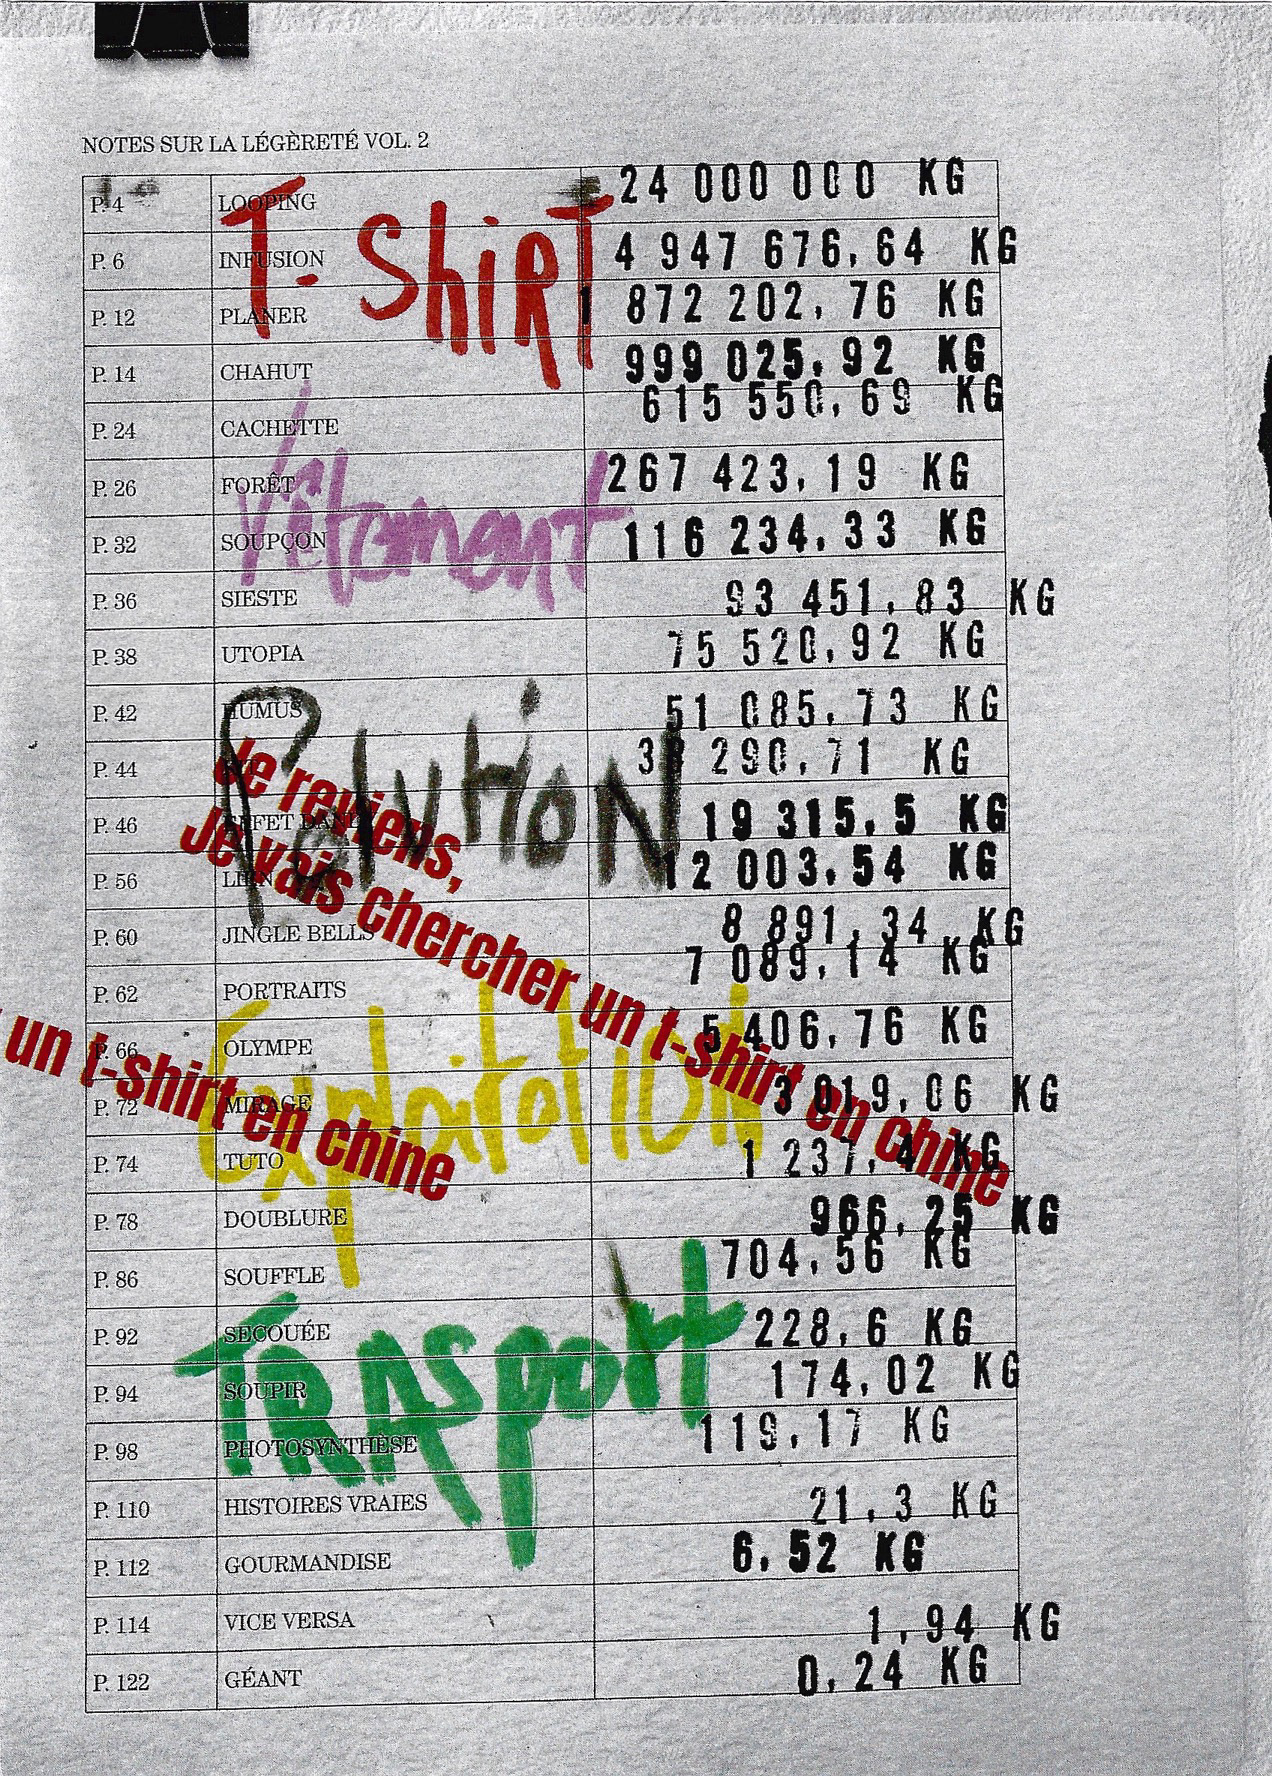 NOTES SUR LA LÉGÈRETÉ VOL. 2
P. 4 LOOPING 24 000 000 KG
P. 6 INFUSION 4 947 676,64 KG
P. 12 PLANER 1 872 202,76 KG
P. 14 CHAHUT 999 025,92 KG
P. 24 CACHETTE 615 550,69 KG
P. 26 FORÊT 267 423,19 KG
P. 32 SOUPÇON 116 234,33 KG
P. 36 SIESTE 93 451,83 KG
P. 38 UTOPIA 75 520,92 KG
P. 42 HUMUS 51 085,73 KG
P. 44 290,71 KG
P. 46 19 315,5 KG
P. 56 12 003,54 KG
P. 60 JINGLE BELLS 8 891,34 KG
P. 62 PORTRAITS 7 089,14 KG
P. 66 OLYMPE 5 406,76 KG
P. 72 MIRAGE 3 019,06 KG
P. 74 TUTO 1 237,4 KG
P. 78 DOUBLURE 966,25 KG
P. 86 SOUFFLE 704,56 KG
P. 92 SECOUÉE 228,6 KG
P. 94 SOUPIR 174,02 KG
P. 98 PHOTOSYNTHÈSE 119,17 KG
P. 110 HISTOIRES VRAIES 21,3 KG
P. 112 GOURMANDISE 6,52 KG
P. 114 VICE VERSA 1,94 KG
P. 122 GÉANT 0,24 KG
T-ShiRT
Vêtement
PolutioN
Je reviens,
Je vais chercher un t-shirt en chine
un t-shirt en chine
Exploitation
TRASpoRt